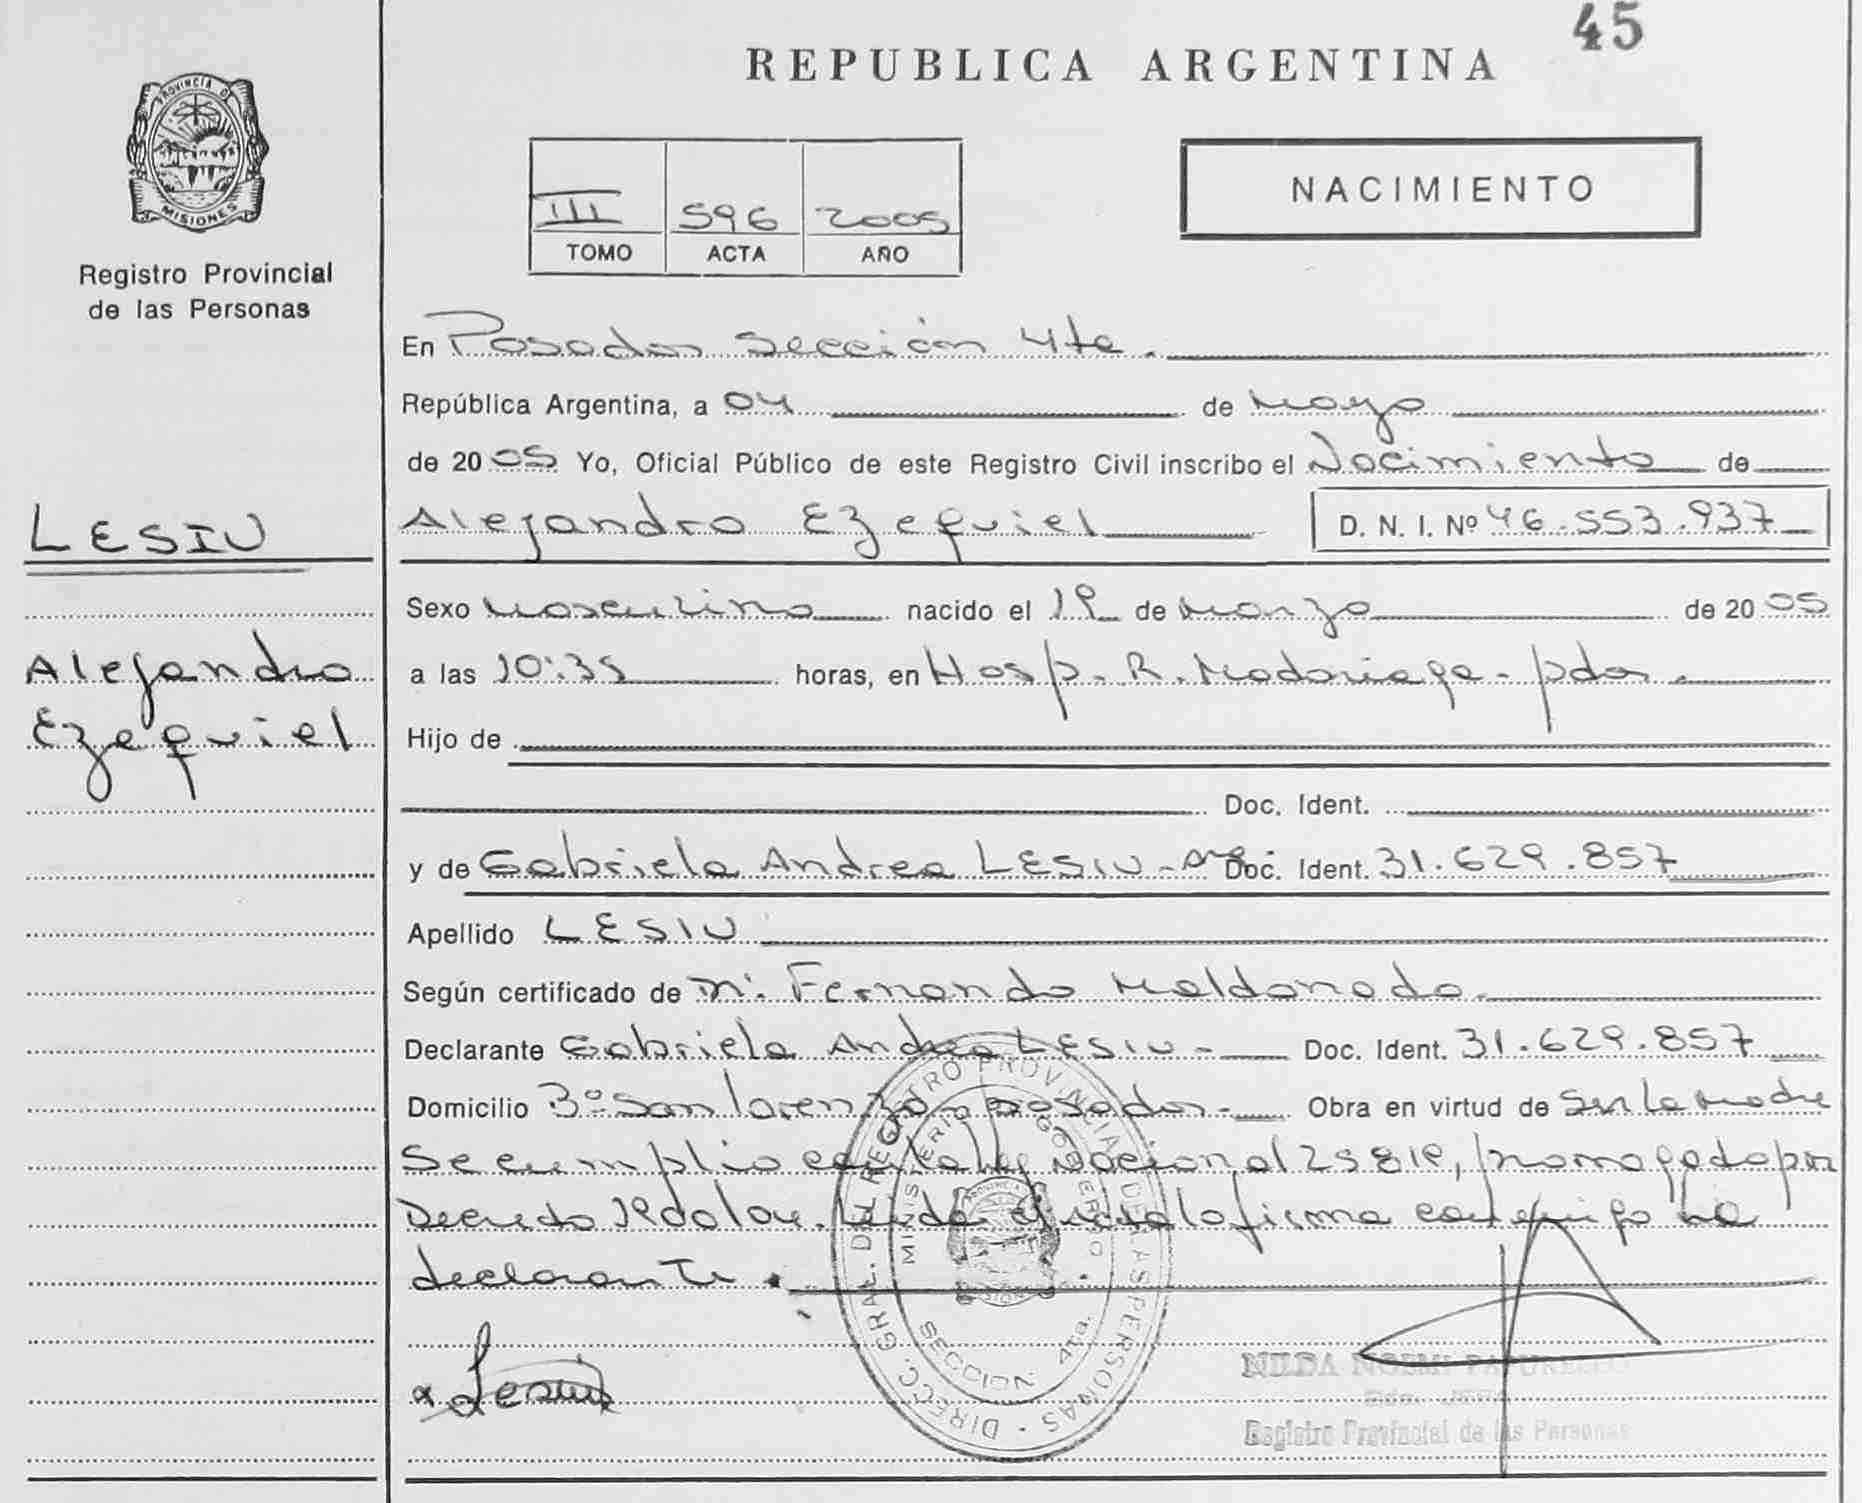 45
REPUBLICA ARGENTINA
PROVINCIA DE
MISIONES
Registro Provincial
de las Personas
III 596 2005
TOMO ACTA AÑO
NACIMIENTO
En Posadas Sección 4ta.
República Argentina, a 04 de Mayo
de 2005 Yo, Oficial Público de este Registro Civil inscribo el Nacimiento de
LESIU
Alejandro Ezequiel D. N. I. Nº 46.553.937
Sexo Masculino nacido el 19 de Marzo de 2005
Alejandro
a las 10:35 horas, en Hosp. R. Madariaga - pdas.
Ezequiel
Hijo de
Doc. Ident.
y de Gabriela Andrea LESIU - Doc. Ident. 31.629.857
Apellido LESIU
Según certificado de Fernando Maldonado.
Declarante Gabriela Andrea LESIU - Doc. Ident. 31.629.857
Domicilio Bº San Lorenzo posadas - Obra en virtud de Ser la Madre
Se cumplio con la ley Nacional 25819, promogada por
Decreto Leida el acta la firma conmigo la
declarante.
DIRECC. GRAL. DEL REGISTRO PROVINCIAL DE LAS PERSONAS
MINISTERIO GOBIERNO
SECCION 4ta.
Lesiu
NILDA NOEMI
Registro Provincial de las Personas